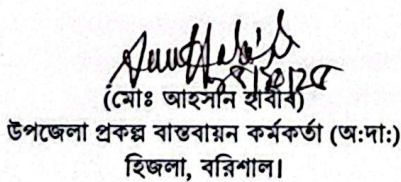 (মোঃ আহসান হাবিব)
উপজেলা প্রকল্প বাস্তবায়ন কর্মকর্তা (অ:দা:)
হিজলা, বরিশাল।